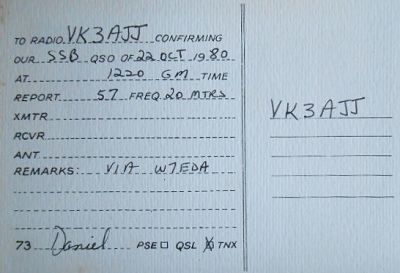 TO RADIO VK3AJJ CONFIRMING
OUR SSB QSO OF 22 OCT 1980
AT 1220 GM TIME
REPORT 57 FREQ 20 MTRS
XMTR
RCVR
ANT
REMARKS: VIA W7EDA
73 Daniel PSE □ QSL ☒ TNX
VK3AJJ